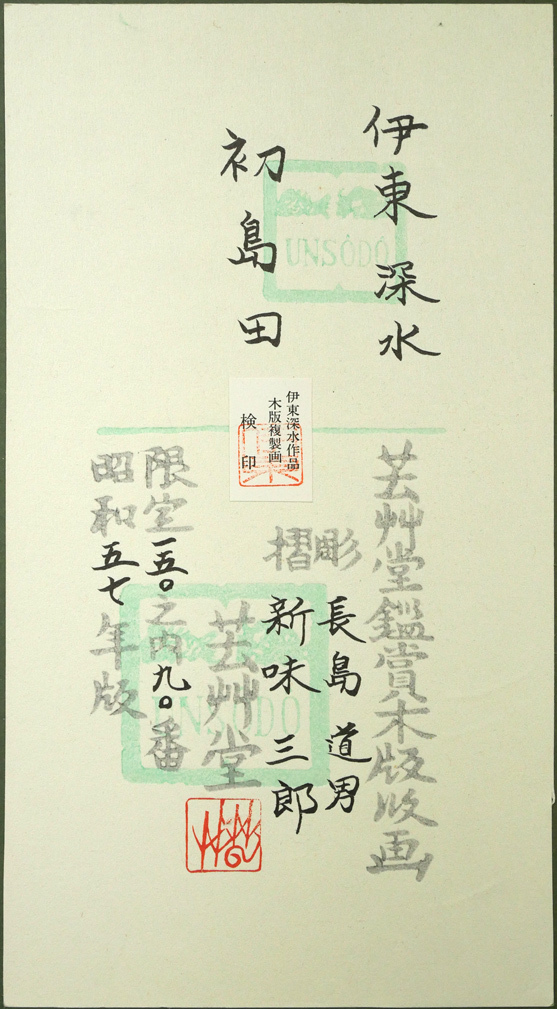 伊東深水
初島田
UNSÔDÔ
伊東深水作品
木版複製画
検印
芸艸堂鑑賞木版版画
彫 長島道男
摺 新味三郎
芸艸堂
UNSÔDÔ
限定一五〇之内九〇番
昭和五七年版